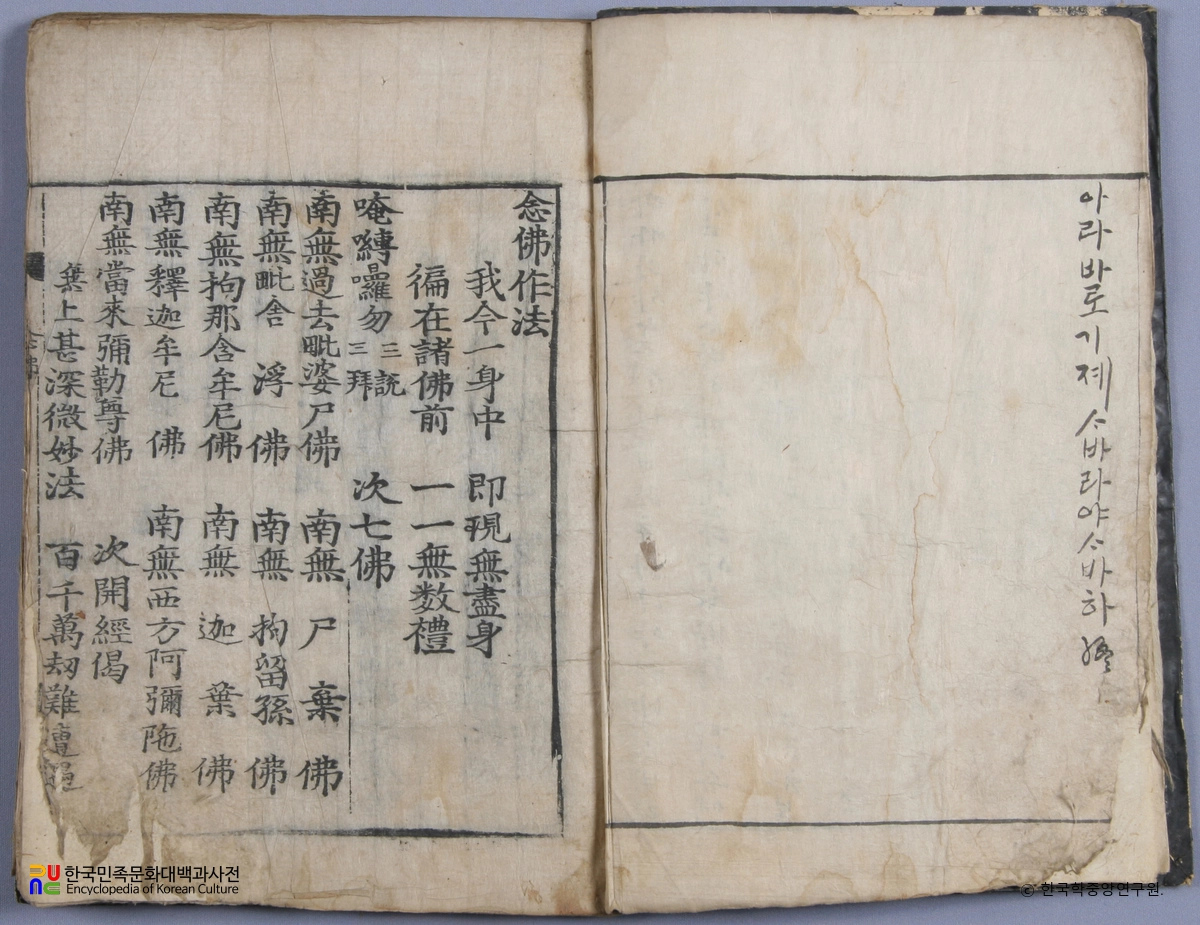 아라바로기졔ᄉᆞ바라야ᄉᆞ바하
念佛作法
我今一身中 即現無盡身
徧在諸佛前 一一無数禮
唵嚩囉勿 三說 三拜 次七佛
南無過去毗婆尸佛 南無尸棄佛
南無毗舍浮佛 南無拘留孫佛
南無拘那含牟尼佛 南無迦葉佛
南無釋迦牟尼佛 南無西方阿彌陁佛
南無當來彌勒尊佛 次開經偈
無上甚深微妙法 百千萬刼難遭遇
念佛
한국민족문화대백과사전
Encyclopedia of Korean Culture
© 한국학중앙연구원.